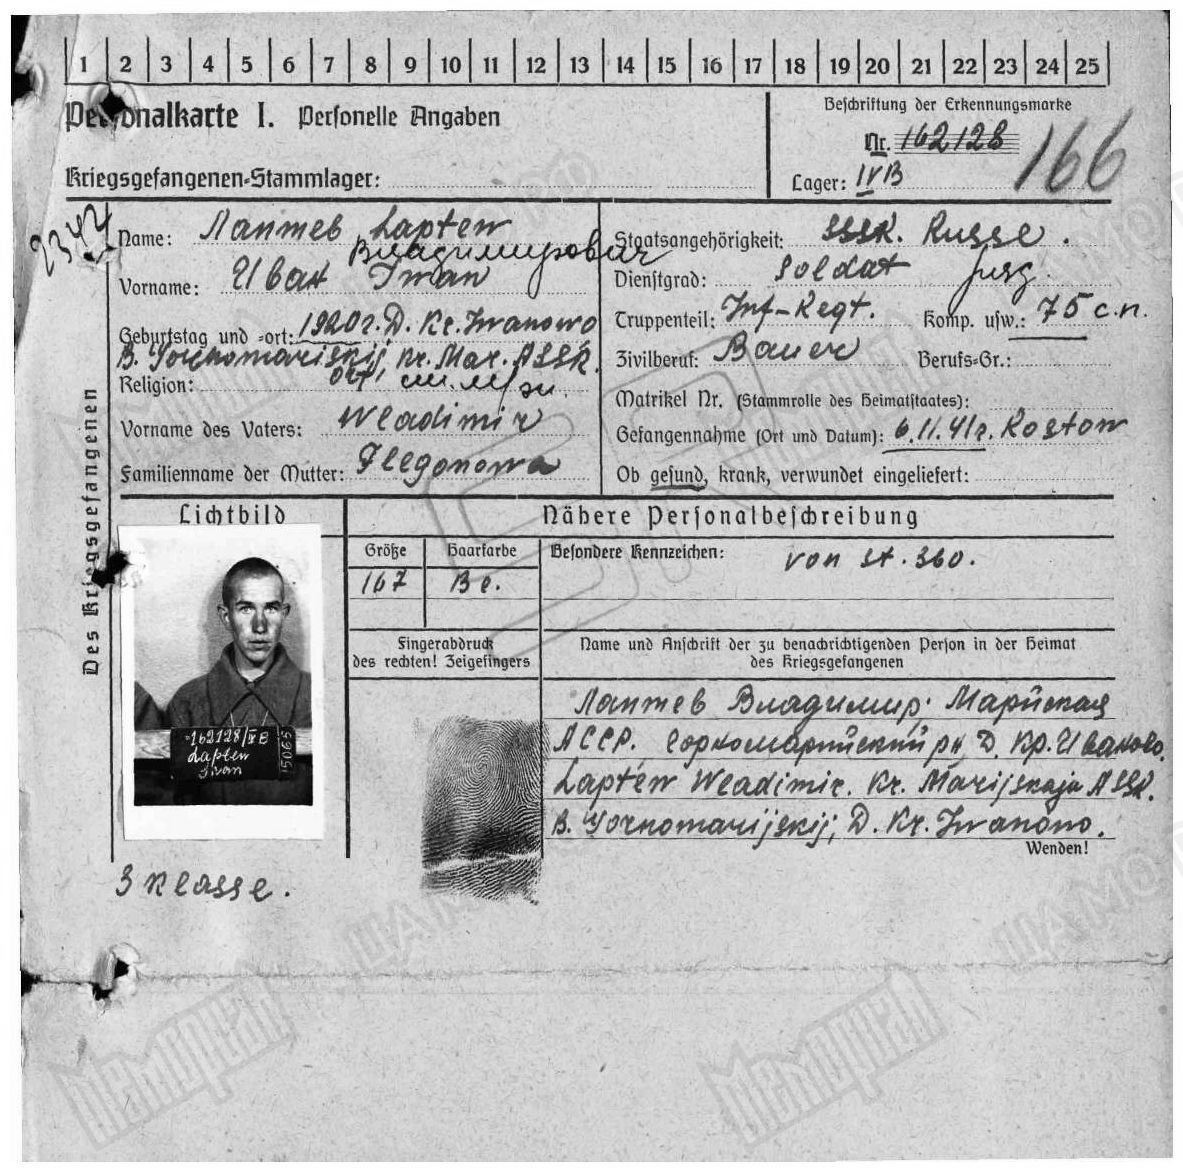 1 2 3 4 5 6 7 8 9 10 11 12 13 14 15 16 17 18 19 20 21 22 23 24 25
Personalkarte I. Personelle Angaben
Beschriftung der Erkennungsmarke
Nr. 162128
166
Kriegsgefangenen-Stammlager:
Lager: IVB
2342
Name: Лаптев Laptew
Владимирович
Vorname: Иван Iwan
Geburtstag und -ort: 1920г. D. Kr. Iwanowo
B. Gornomariiskij, Kr. Mar. ASSR.
Religion: ort
Vorname des Vaters: Wladimir
Familienname der Mutter: Flegonowa
Staatsangehörigkeit: SSSR. Russe.
Dienstgrad: Soldat
Truppenteil: Inf-Regt. Komp. usw.: 75 с.п.
Zivilberuf: Bauer Berufs-Gr.:
Matrikel Nr. (Stammrolle des Heimatstaates):
Gefangennahme (Ort und Datum): 6.11.41г. Rostow
Ob gesund, krank, verwundet eingeliefert:
Des Kriegsgefangenen
Lichtbild
Nähere Personalbeschreibung
Größe Haarfarbe Besondere Kennzeichen: von St. 360.
167 Be.
162128/IVB
Laptew
Iwan
15065
Fingerabdruck
des rechten! Zeigefingers
Name und Anschrift der zu benachrichtigenden Person in der Heimat
des Kriegsgefangenen
Лаптев Владимир. Марийская
АССР. Горномарийский рн, Д. Кр. Иваново.
Laptew Wladimir. Kr. Marijskaja ASSR.
B. Gornomarijskij, D. Kr. Iwanowo.
Wenden!
3 Klasse.
Мемориал
ЦАМО РФ